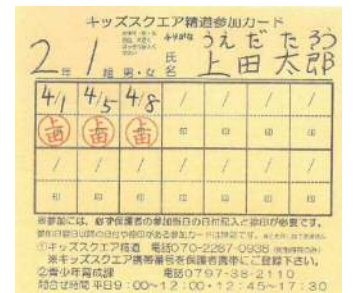 キッズスクエア精道参加カード
ふりがな うえだ たろう
2年 1組 男・女 氏名 上田太郎
4/1 4/5 4/8 / / / /
上田 上田 上田 印 印 印 印
/ / / / / / /
印 印 印 印 印 印 印
※参加には、必ず保護者の参加当日の日付記入と捺印が必要です。
①キッズスクエア精道 電話070-2287-0938
※キッズスクエア携帯番号を保護者携帯にご登録下さい。
②青少年育成課 電話0797-38-2110
問合せ時間 平日9:00~12:00・12:45~17:30